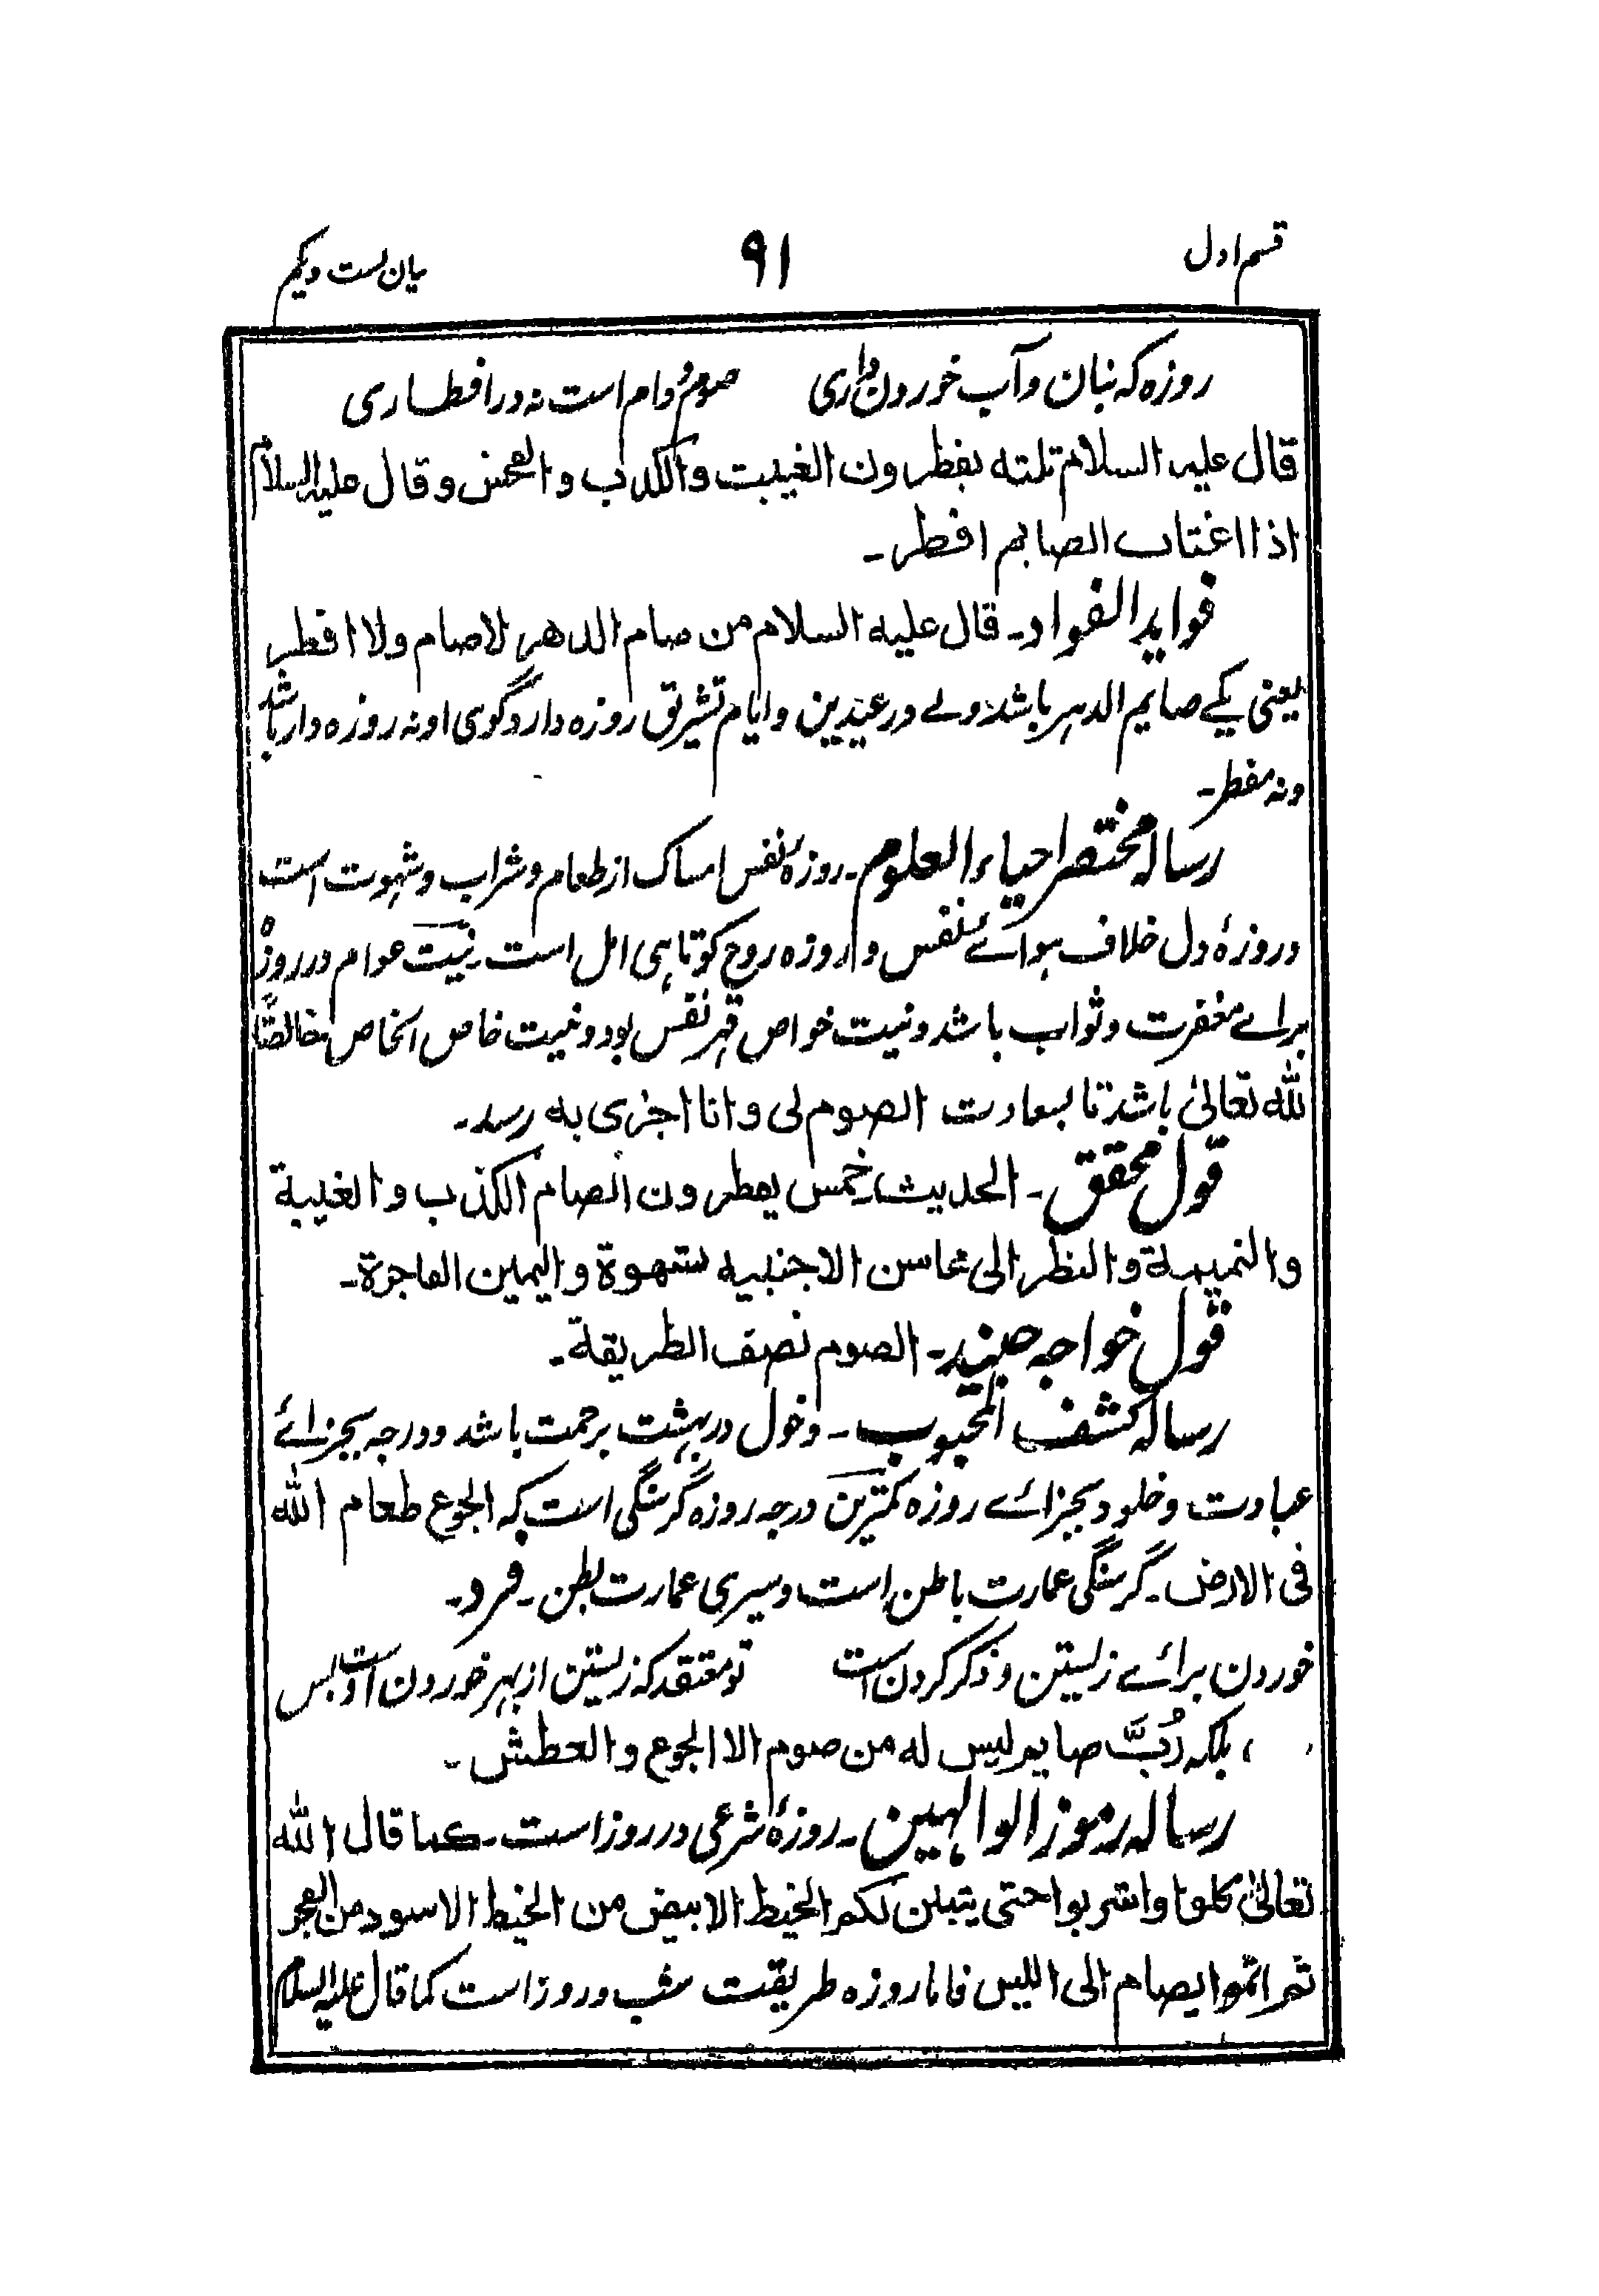 قسم اول ۹۱ بیان بست ویکم
روزه که بنان و آب خوردن داری صوم دوام است نه در افطاری
قال علیه السلام ثلثه یفطرون الغیبت والکذب والفحش وقال علیه السلام
اذا اغتاب الصایم افطر۔
فواید الفواد۔ قال علیه السلام من صام الدهر لا صام ولا افطر
یعنی یکے صایم الدہر باشد ولے در عیدین و ایام تشریق روزه دارد گوی او نه روزه دار باشد
ونه مفطر۔
رساله مختصر احیاء العلوم۔ روزهٔ نفس امساک از طعام و شراب و شہوت است
و روزۂ دل خلاف ہوائے نفس و روزه روح کوتاہی امل است۔ نیّت عوام در روزهٔ
برائے مغفرت و ثواب باشد و نیت خواص قہر نفس بود و نیت خاص الخاص خالصًا
لله تعالیٰ باشد تا بسعادت الصوم لی وانا اجزی به رسد۔
قول محقق۔ الحدیث خمس یفطرون الصام الکذب والغیبة
والنمیمة والنظر الی محاسن الاجنبیه شهوة والیمین الفاجرة۔
قول خواجه جنید۔ الصوم نصف الطریقة۔
رساله کشف المحجوب۔ دخول در بہشت برحمت باشد و درجه بجزائے
عبادت و خلود بجزائے روزه کمترین درجه روزه گرسنگی است که الجوع طعام الله
فی الارض۔ گرسنگی عمارت باطن است و سیری عمارت بطن۔ فرد۔
خوردن برائے زیستن و ذکر کردن است تو معتقد که زیستن از بہر خوردن است و بس
، بلکه رُبَّ صایم لیس له من صوم الا الجوع والعطش۔
رساله رموز الوالہین۔ روزۂ شرعی در روز است۔ کما قال الله
تعالیٰ کلوا واشربوا حتی یتبین لکم الخیط الابیض من الخیط الاسود من الفجر
ثم اتموا لصیام الی اللیل فاما روزه طریقت شب و روز است کما قال علیه السلام